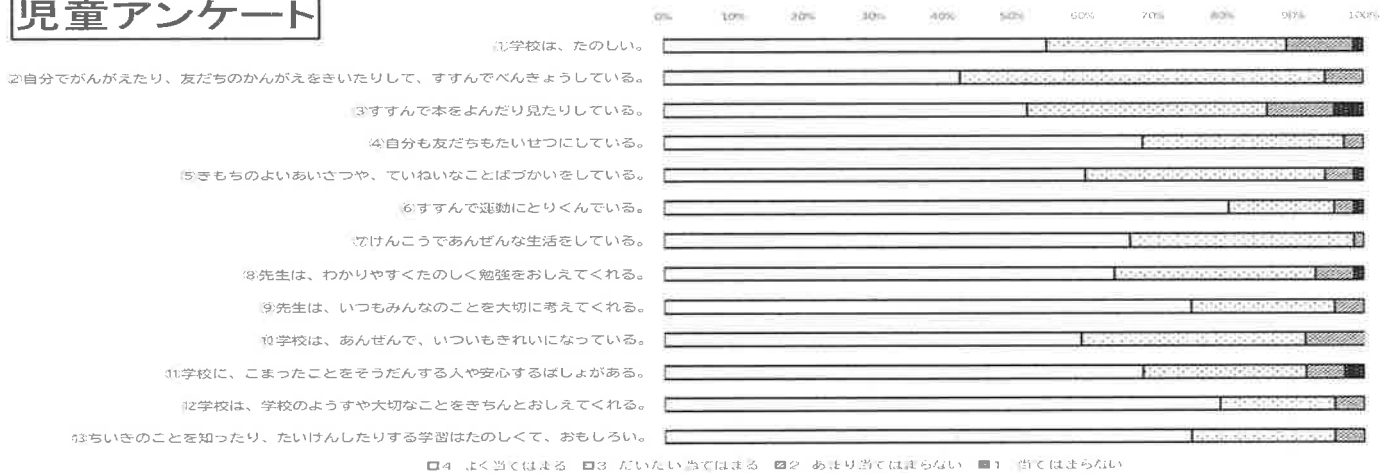 児童アンケート
0% 10% 20% 30% 40% 50% 60% 70% 80% 90% 100%
①学校は、たのしい。
②自分でがんがえたり、友だちのかんがえをきいたりして、すすんでべんきょうしている。
③すすんで本をよんだり見たりしている。
④自分も友だちもたいせつにしている。
⑤きもちのよいあいさつや、ていねいなことばづかいをしている。
⑥すすんで運動にとりくんでいる。
⑦けんこうであんぜんな生活をしている。
⑧先生は、わかりやすくたのしく勉強をおしえてくれる。
⑨先生は、いつもみんなのことを大切に考えてくれる。
⑩学校は、あんぜんで、いついもきれいになっている。
⑪学校に、こまったことをそうだんする人や安心するばしょがある。
⑫学校は、学校のようすや大切なことをきちんとおしえてくれる。
⑬ちいきのことを知ったり、たいけんしたりする学習はたのしくて、おもしろい。
4 よく当てはまる 3 だいたい当てはまる 2 あまり当てはまらない 1 当てはまらない